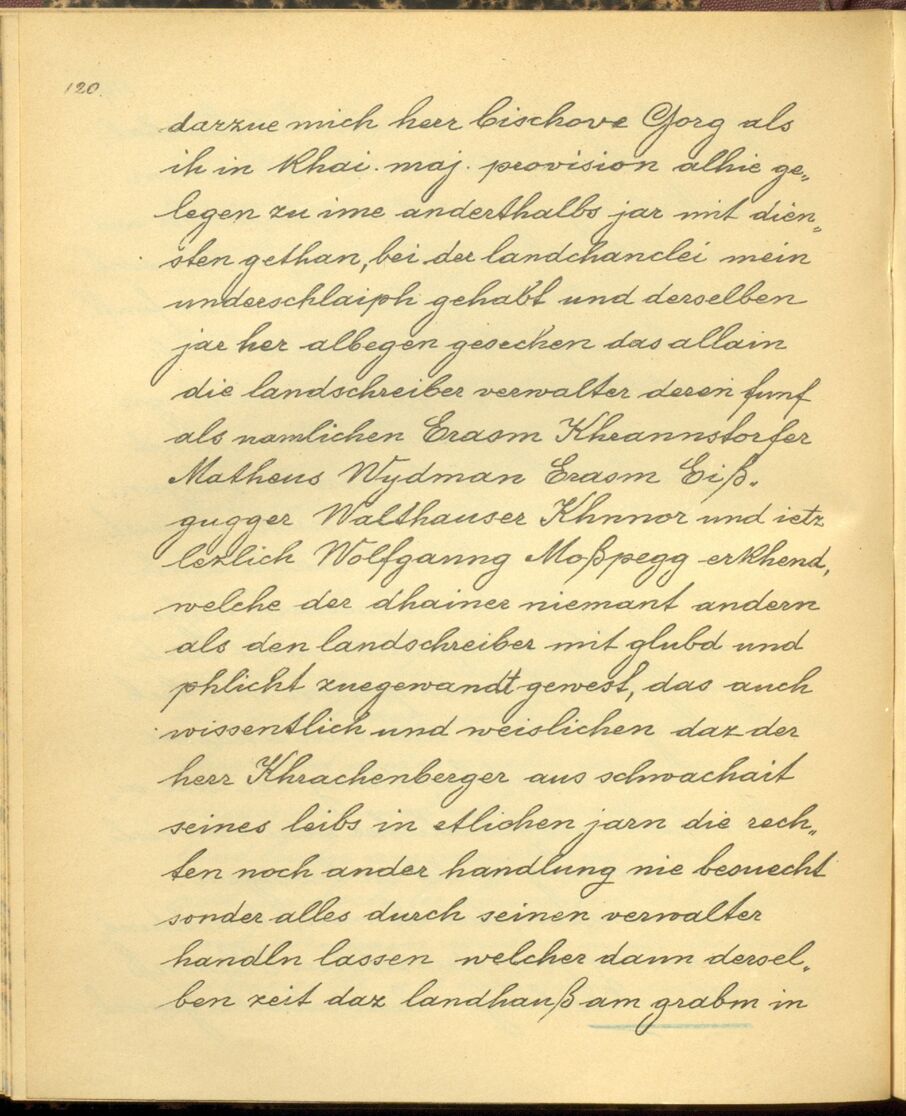 120.
darzue mich herr bischove Gorg als
ih in khai. maj. provision alhie ge„
legen zu ime anderthalbs jar mit dien„
sten gethan, bei der landchanclei mein
underschlaiph gehabt und derselben
jar her albegen gesechen das allain
die landschreiber verwalter deren funf
als namlichen Erasm Khrannstorfer
Matheus Wydman Erasm Eiß„
gugger Walthauser Khnnor und ietz
lezlich Wolfganng Moßpegg erkhend,
welche der dhainer niemant andern
als den landschreiber mit glubd und
phlicht zuegewandt gewest, das auch
wissentlich und weislichen daz der
herr Khrachenberger aus schwachait
seines leibs in etlichen jarn die rech„
ten noch ander handlung nie besuecht
sonder alles durch seinen verwalter
handln lassen welcher dann dersel„
ben zeit daz landhauß am grabm in